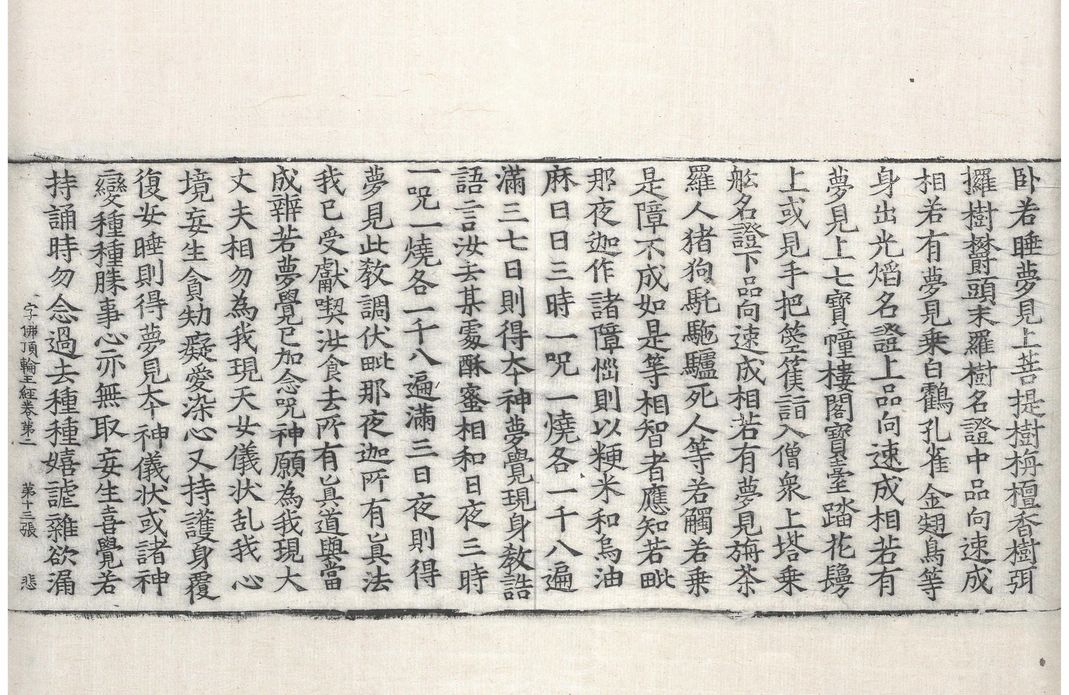 卧若睡夢見上菩提樹栴檀香樹弭
攞樹欝頭末羅樹名證中品向速成
相若有夢見乗白鶴孔雀金翅鳥等
身出光焰名證上品向速成相若有
夢見上七寶幢樓閣寶臺踏花鬘
上或見手把箜篌詣入僧衆上塔乗
舩名證下品向速成相若有夢見旃茶
羅人猪狗馳驢死人等若觸若乗
是障不成如是等相智者應知若毗
那夜迦作諸障惱則以粳米和烏油
麻日日三時一呪一燒各一千八遍
滿三七日則得夲神夢覺現身教誥
語言汝去某處酥蜜相和日夜三時
一呪一燒各一千八遍滿三日夜則得
夢見此教調伏毗那夜迦所有真法
我已受獻喫汝食去所有真道與當
成辦若夢覺已加念呪神願為我現大
丈夫相勿為我現天女儀状乱我心
境妄生貪㓜癡愛染心又持護身覆
復安睡則得夢見夲神儀状或諸神
變種種勝事心亦無取妄生喜覺若
持誦時勿念過去種種嬉謔雜欲漏
字佛頂輪王經卷第二 第十三張 悲